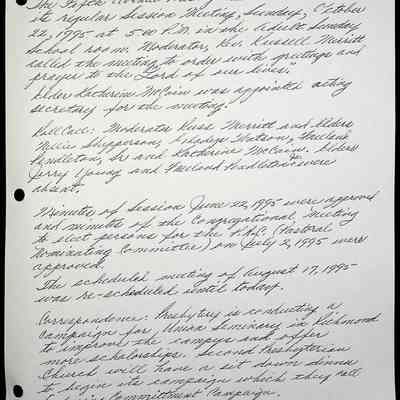 The Fifth Avenue
its regular Session Meeting, Sunday, October
22, 1995 at 5:00 P.M. in the Adult Sunday
School room. Moderator, Rev. Russell Merritt
called the meeting to order with greetings and
prayer to the "Lord of our lives".
Elder Katherine McCain was appointed acting
secretary for the meeting.
Roll Call: Moderator Russ Merritt and Elders
Nellie Shypperson, Gladys Watson,
Pendleton, Sr and Katherine McCain. Elders
Jerry Young and Pendleton were
absent.
Minutes of Session June 22, 1995 were approved
and minutes of the Congregational Meeting
to elect persons for the P.N.C. (Pastoral
Nominating Committee) on July 2, 1995 were
approved.
The scheduled meeting of August 17, 1995
was re-scheduled until today.
Correspondence: Presbytery is conducting a
campaign for Union Seminary in Richmond
to improve the campus and offer
more scholarships. Second Presbyterian
Church will have a sit down dinner
to begin its campaign which they call
Committment Campaign.